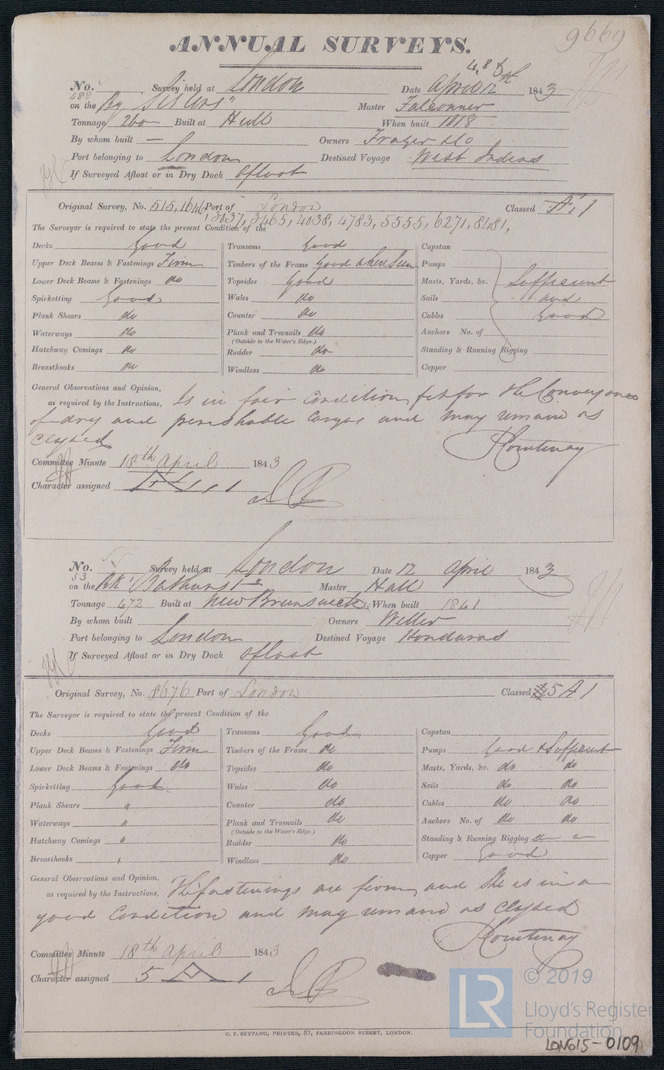 9669
ANNUAL SURVEYS.
No. 488 Survey held at London Date April 12 1843
on the Bg "Sisters" Master Falconner
Tonnage 260 Built at Hull When built 1818
By whom built — Owners Frazer & Co
Port belonging to London Destined Voyage West Indies
If Surveyed Afloat or in Dry Dock Afloat
Original Survey, No. 515, 1646 Port of London Classed Æ 1
3037, 3465, 4038, 4783, 5555, 6271, 8481,
The Surveyor is required to state the present Condition of the
Decks Good Transoms Good Capstan
Upper Deck Beams & Fastenings Firm Timbers of the Frame Good where seen Pumps
Lower Deck Beams & Fastenings do Topsides Good Masts, Yards, &c. Sufficient
Spirketting Good Wales do Sails and
Plank Shears do Counter do Cables Good
Waterways do Plank and Treenails do Anchors No. of
(Outside to the Water's Edge.)
Hatchway Comings do Rudder do Standing & Running Rigging
Breasthooks do Windlass do Copper
General Observations and Opinion,
as required by the Instructions, Is in fair condition, fit for the Conveyance
of dry and perishable cargo and may remain as
classed
Courtenay
Committee Minute 18th April 1843
Character assigned Æ 1
No. 53 Survey held at London Date 12 April 1843
on the Bk "Bathurst" Master Hall
Tonnage 472 Built at New Brunswick When built 1841
By whom built Owners Weller
Port belonging to London Destined Voyage Honduras
If Surveyed Afloat or in Dry Dock Afloat
Original Survey, No. 8676 Port of London Classed 5 A 1
The Surveyor is required to state the present Condition of the
Decks Good Transoms Good Capstan
Upper Deck Beams & Fastenings Firm Timbers of the Frame do Pumps Good & Sufficient
Lower Deck Beams & Fastenings do Topsides do Masts, Yards, &c. do do
Spirketting Good Wales do Sails do do
Plank Shears " Counter do Cables do do
Waterways " Plank and Treenails do Anchors No. of do do
(Outside to the Water's Edge.)
Hatchway Comings " Rudder do Standing & Running Rigging
Breasthooks " Windlass do Copper Good
General Observations and Opinion,
as required by the Instructions, The fastenings are firm, and She is in a
good Condition and may remain as classed
Courtenay
Committee Minute 18th April 1843
Character assigned 5 A 1
C. F. SEYFANG, PRINTER, 57, FARRINGDON STREET, LONDON.
LR © 2019
Lloyd's Register
Foundation
LON615-0109